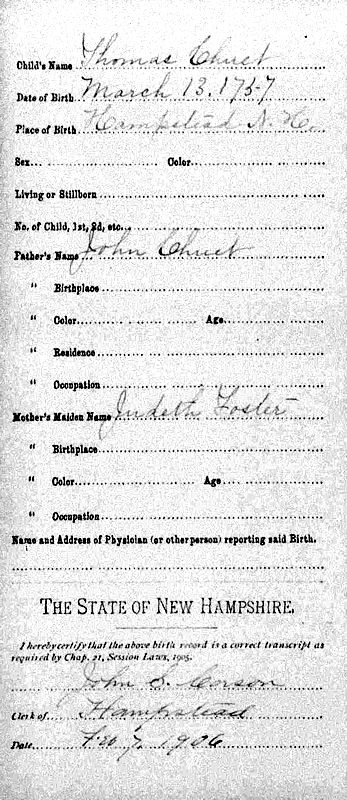 Child's Name Thomas Chuet
Date of Birth March 13, 1757
Place of Birth Hampstead N. H.
Sex Color
Living or Stillborn
No. of Child, 1st, 2d, etc.
Father's Name John Chuet
" Birthplace
" Color Age
" Residence
" Occupation
Mother's Maiden Name Judeth Foster
" Birthplace
" Color Age
" Occupation
Name and Address of Physician (or other person) reporting said Birth.
THE STATE OF NEW HAMPSHIRE.
I hereby certify that the above birth record is a correct transcript as
required by Chap. 21, Session Laws, 1905.
John S. Corson
Clerk of Hampstead
Date Feb 7, 1906